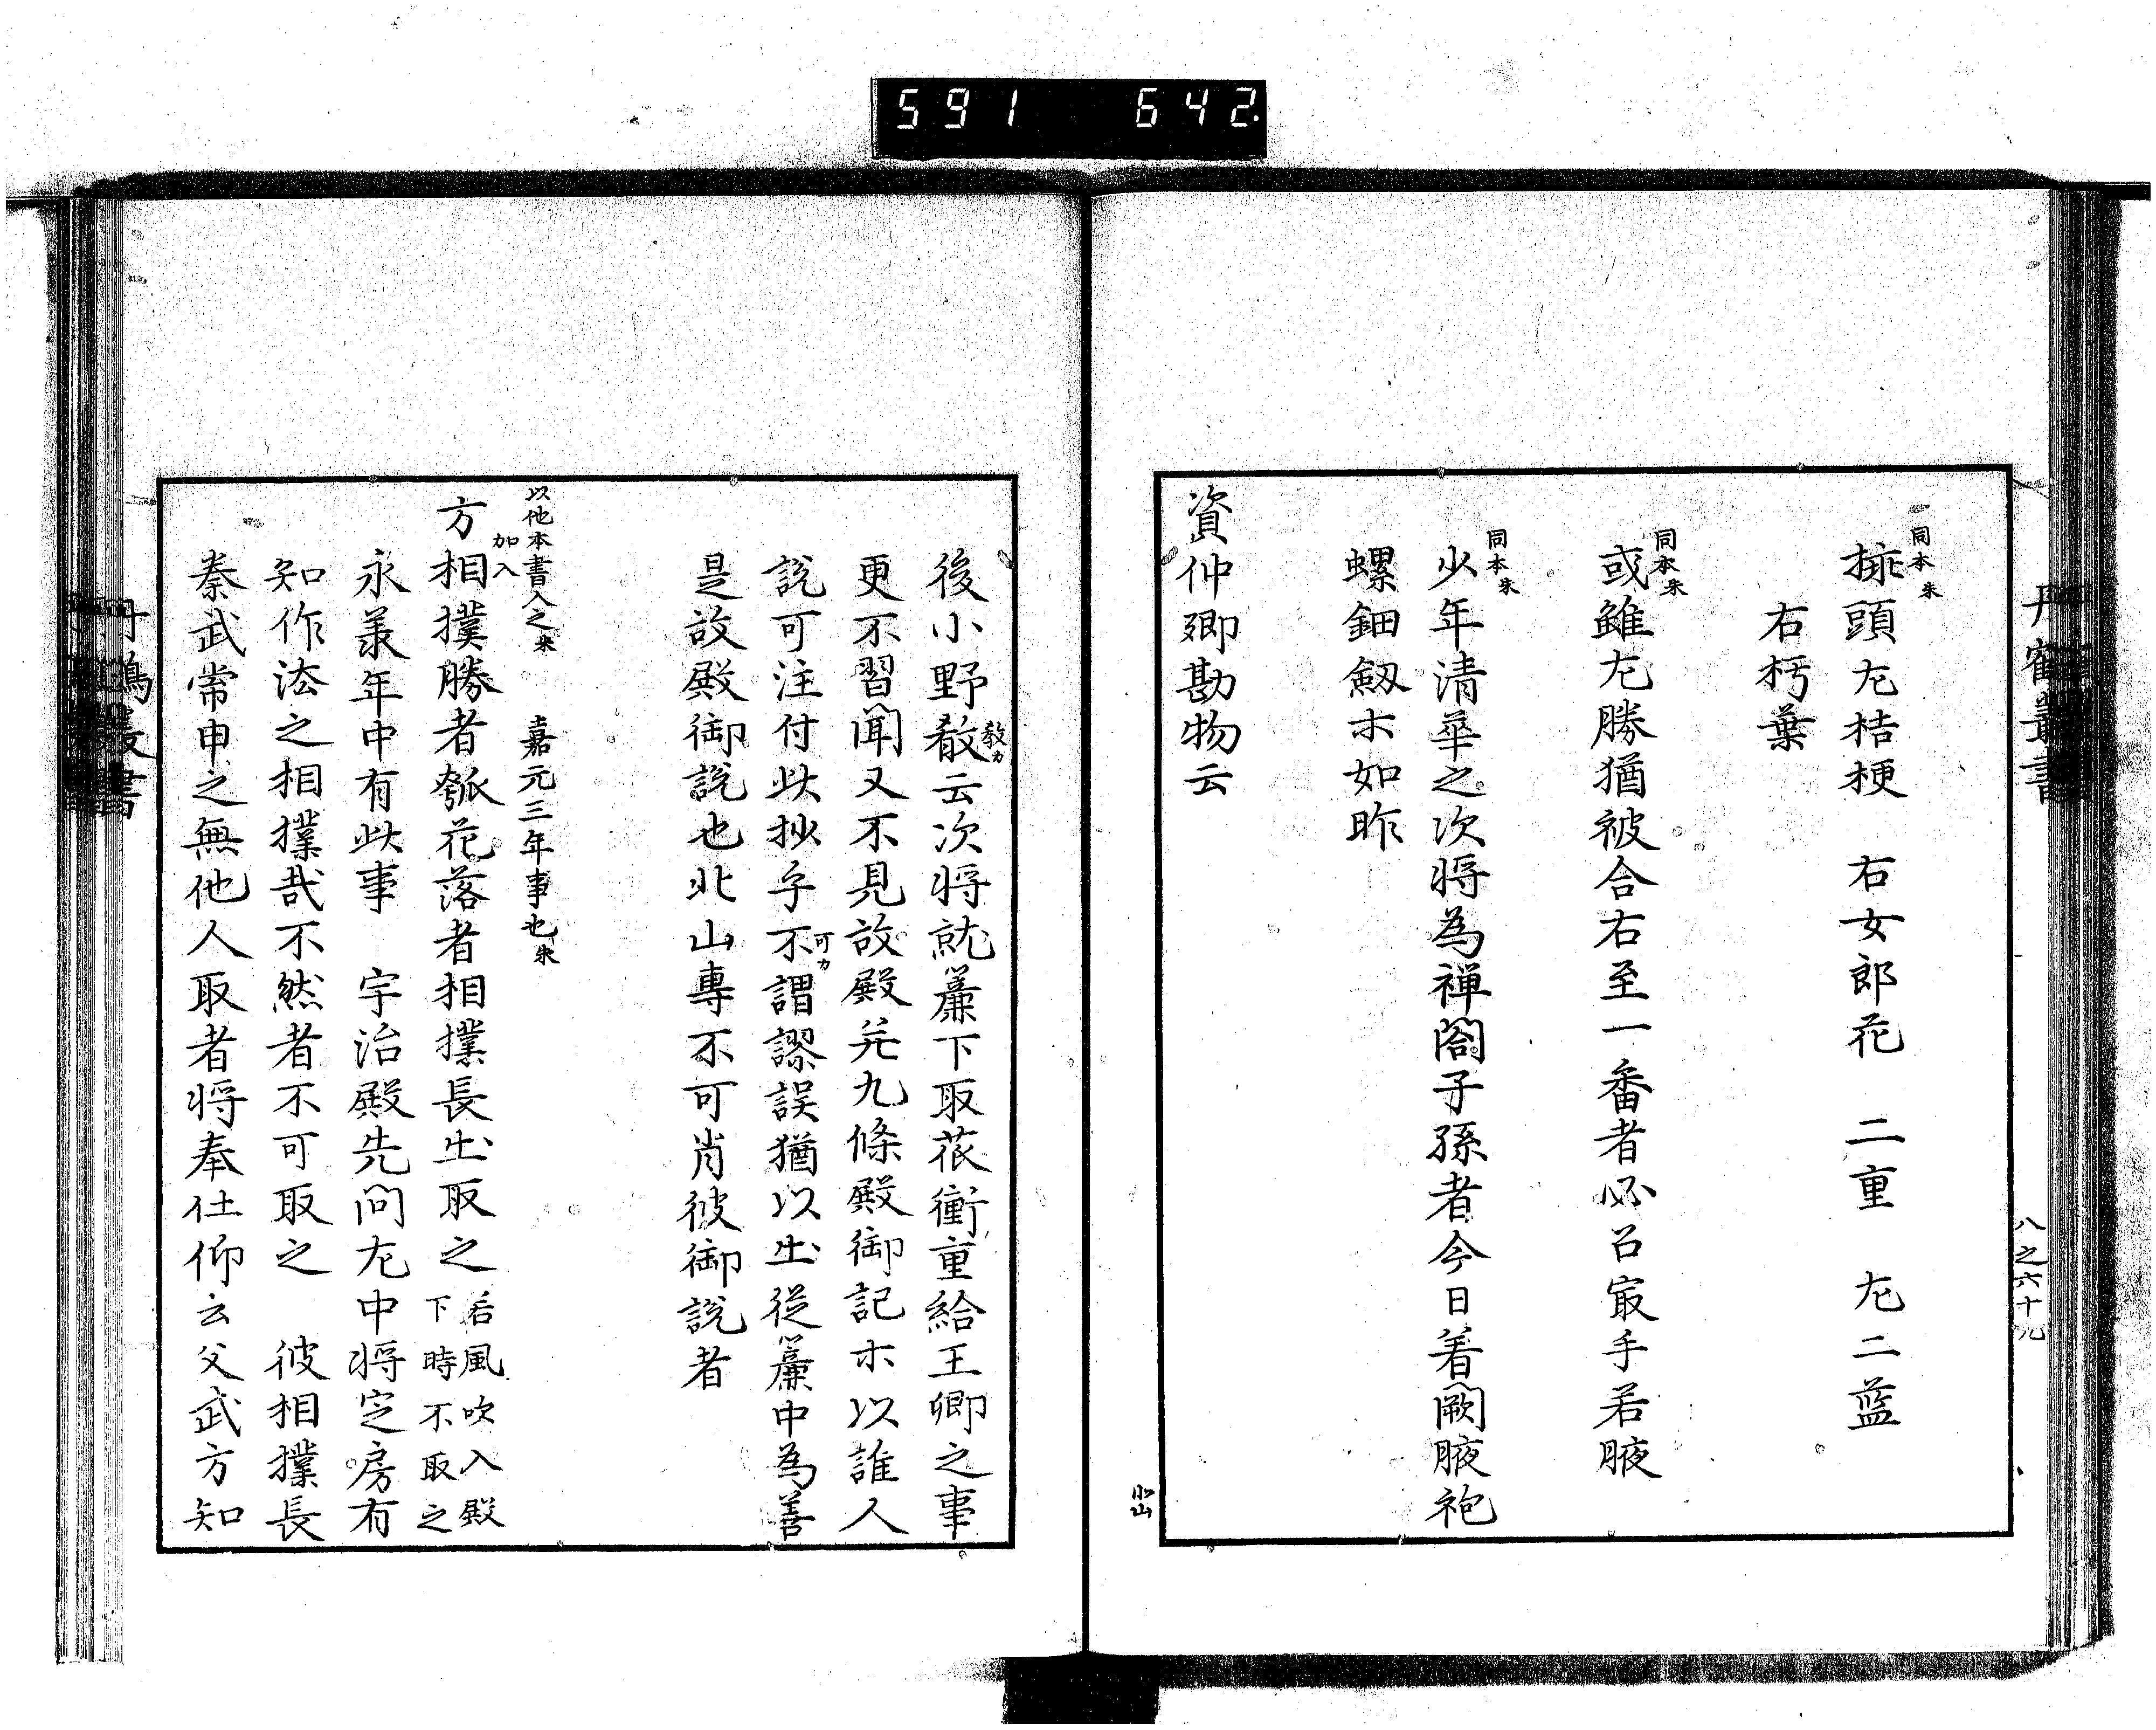 591 642
丹鶴叢書
八之六十九
同本朱
挿頭左桔梗　右女郎花　二重　左二藍
右朽葉
同本朱
或雖左勝猶被合右至一番者必召冣手若腋
同本朱
少年清華之次将為禅閤子孫者今日着闕腋袍
螺鈿釼ホ如昨
資仲卿勘物云
北山
後小野敎云次将就簾下取菰衝重給王卿之事
教カ
更不習聞又不見故殿并九條殿御記ホ以誰人
説可注付此抄乎不謂謬誤猶以出従簾中為善
可カ
是故殿御説也北山専不可肖彼御説者
以他本書入之朱　嘉元三年事也朱
加入
方相撲勝者瓠花落者相撲長出取之若風吹入殿
下時不取之
永承年中有此事　宇治殿先問左中将定房有
知作法之相撲哉不然者不可取之　彼相撲長
秦武常申之無他人取者将奉仕仰云父武方知
丹鶴叢書